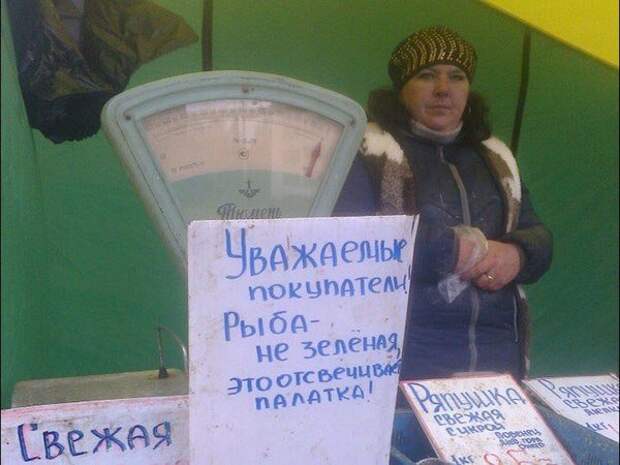 Тюмень
Уважаемые
покупатели!
Рыба-
не зелёная,
это отсвечивает
палатка!
Свежая
Ряпушка
свежая
с икрой
1кг
Ряпушка
свежая
1кг